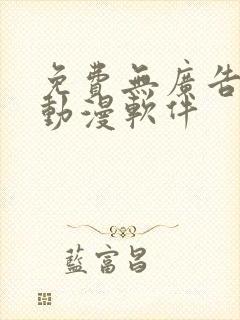 免費無廣告
動漫軟件
藍富昌